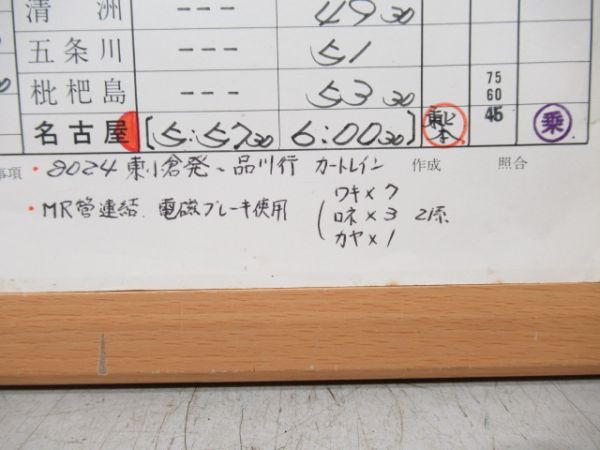 清洲 --- 49 30
五条川 --- 51
枇杷島 --- 53 30 75 60 45
名古屋 [5:57 30 6:00 30] 東上本 乗
事項 ・8024 東小倉発、品川行 カートレイン 作成 照合
・MR管連結、電磁ブレーキ使用
ワキ×7
ロネ×3 21系
カヤ×1